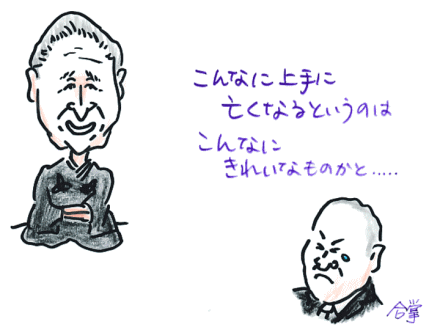 こんなに上手に
亡くなるというのは
こんなに
きれいなものかと.....
合掌